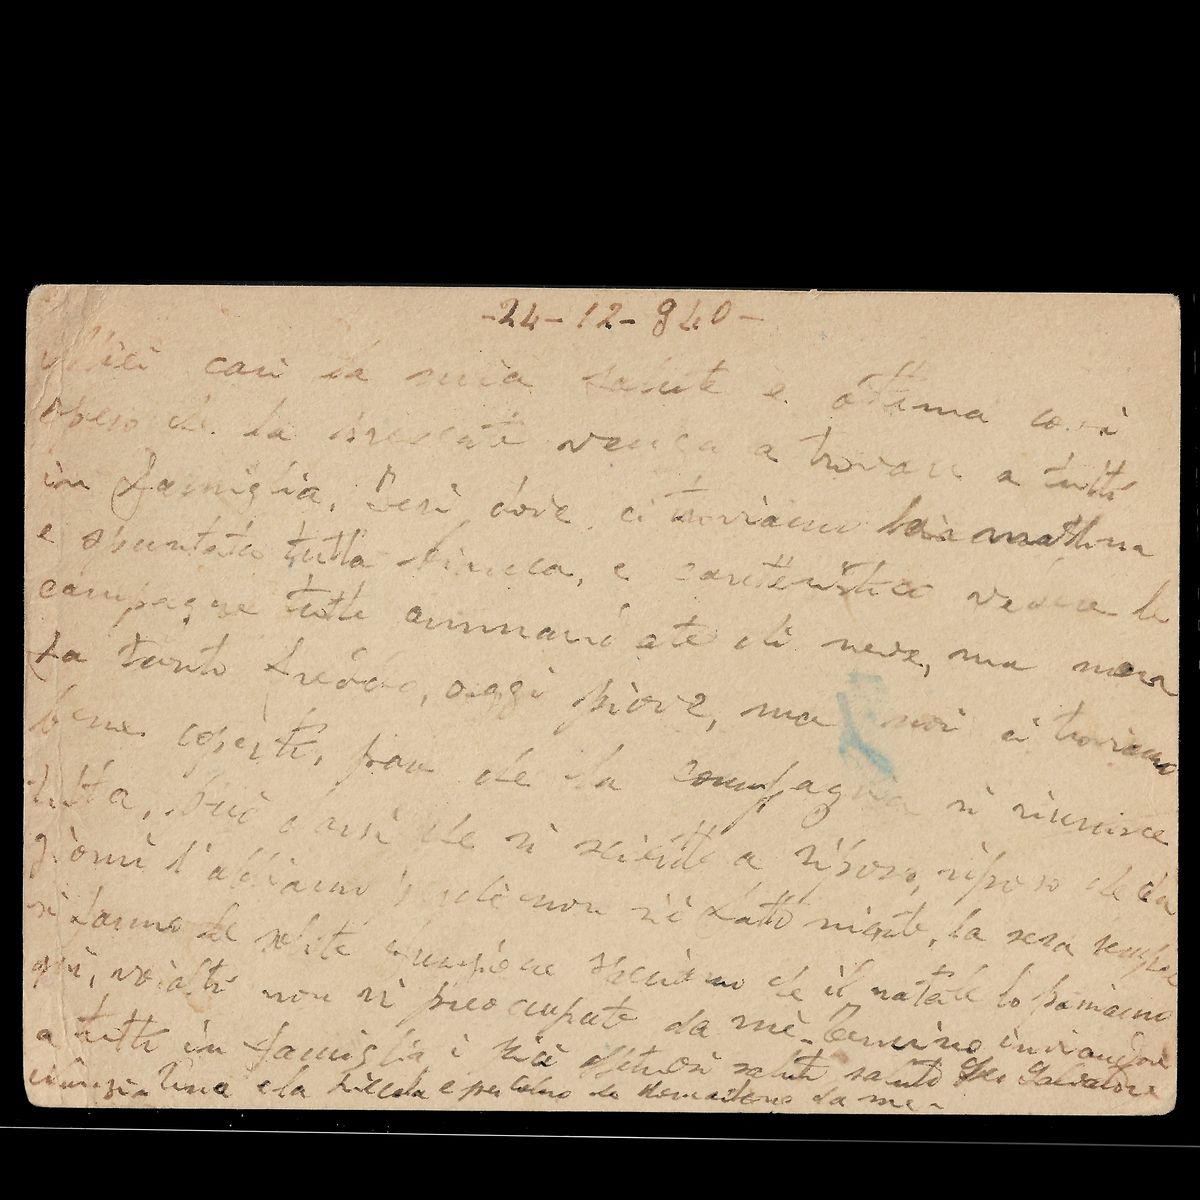 -24-12-940-
Miei cari la mia salute e ottima così
spero che la presente venga a trovare a tutti
in famiglia, Ieri dove ci troviamo la mattina
e spuntata tutta bianca, e caratteristico vedere le
campagne tutte ammandate di neve, ma non
fa tanto freddo, oggi piove, ma noi ci troviamo
bene coperti, pare che la compagnia si riunisce
tutta, può darsi che si scende a riposo, riposo che da
giorni l'abbiamo perché non s'è fatto niente, la sera sempre
si fanno le solite speriamo che il natale lo passiamo
qui, voialtri non vi preoccupate da mè. Termino inviandovi
a tutti in famiglia i miei affettuosi saluti saluto Salvatore
Tina e la piccola e per da me.